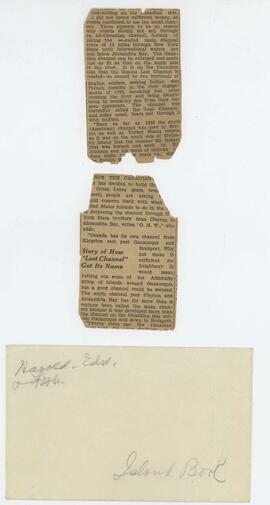 and did not spend sufficient money, as
There appears to be no reason
why vessels should not sail through
an all-Canadian channel, instead of
using the so-called main channel
route of 15 miles through New York
State until international waters are
met below Alexandria Bay. The Canadian
channel can be enlarged and made
just as fit as that on the south side
of the river. It is on the Canadian
side that the famous Lost Channel is
located—so named by two boatloads of
English soldiers, seeking Indian and
French canoists in the river engage-
ments of 1760, becoming lost after
crossing the river and being slaugh-
tered by musketry fire from their un-
seen opponents. The channel was
thereafter called the "Lost Channel,"
and today small boats sail through it
with tourists.
"Back as far as 1838 the south
(American) channel was used by Brit-
ish as well as United States vessels, as
it was on the south side of Wellesley
Island that the steamer Sir Robert
Peel was burned and sunk by Bill
Johnson and his band of outlaws
SINCE THE CANADIAN
has decided to build
Great Lakes grain
ments, people are asking
should concern itself with what
United States intends to do in the
deepening the channel through
York State territory from Clayton to
Alexandria Bay, writes "O. H. W.," who
adds:
"Canada has its own channel from
Kingston east past Gananoque and
Rockport. Why
Story of How
"Lost Channel"
Got Its Name
not make it
sufficient for
freighters? It
would mean
cutting out some of the Admiralty
group of islands around Gananoque,
but a good channel could be secured.
The south channel past Clayton and
Alexandria Bay has for more than a
century been called the main chan-
nel because it was developed more than
the channel on the Canadian side out-
side Gananoque and down to Rockport.
Twenty years ago the Canadian
Harold - Edw.
Island Book